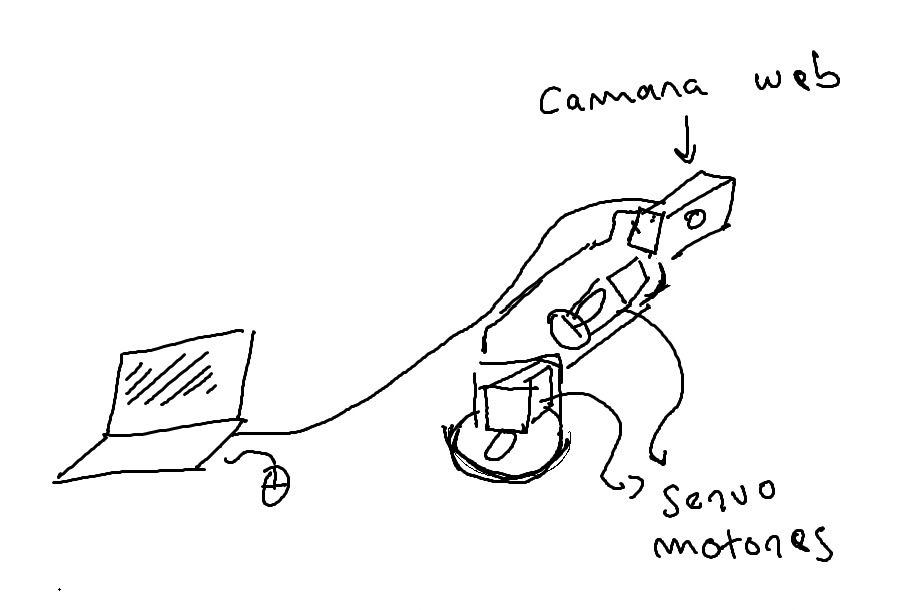 Camara web
Servo
motores